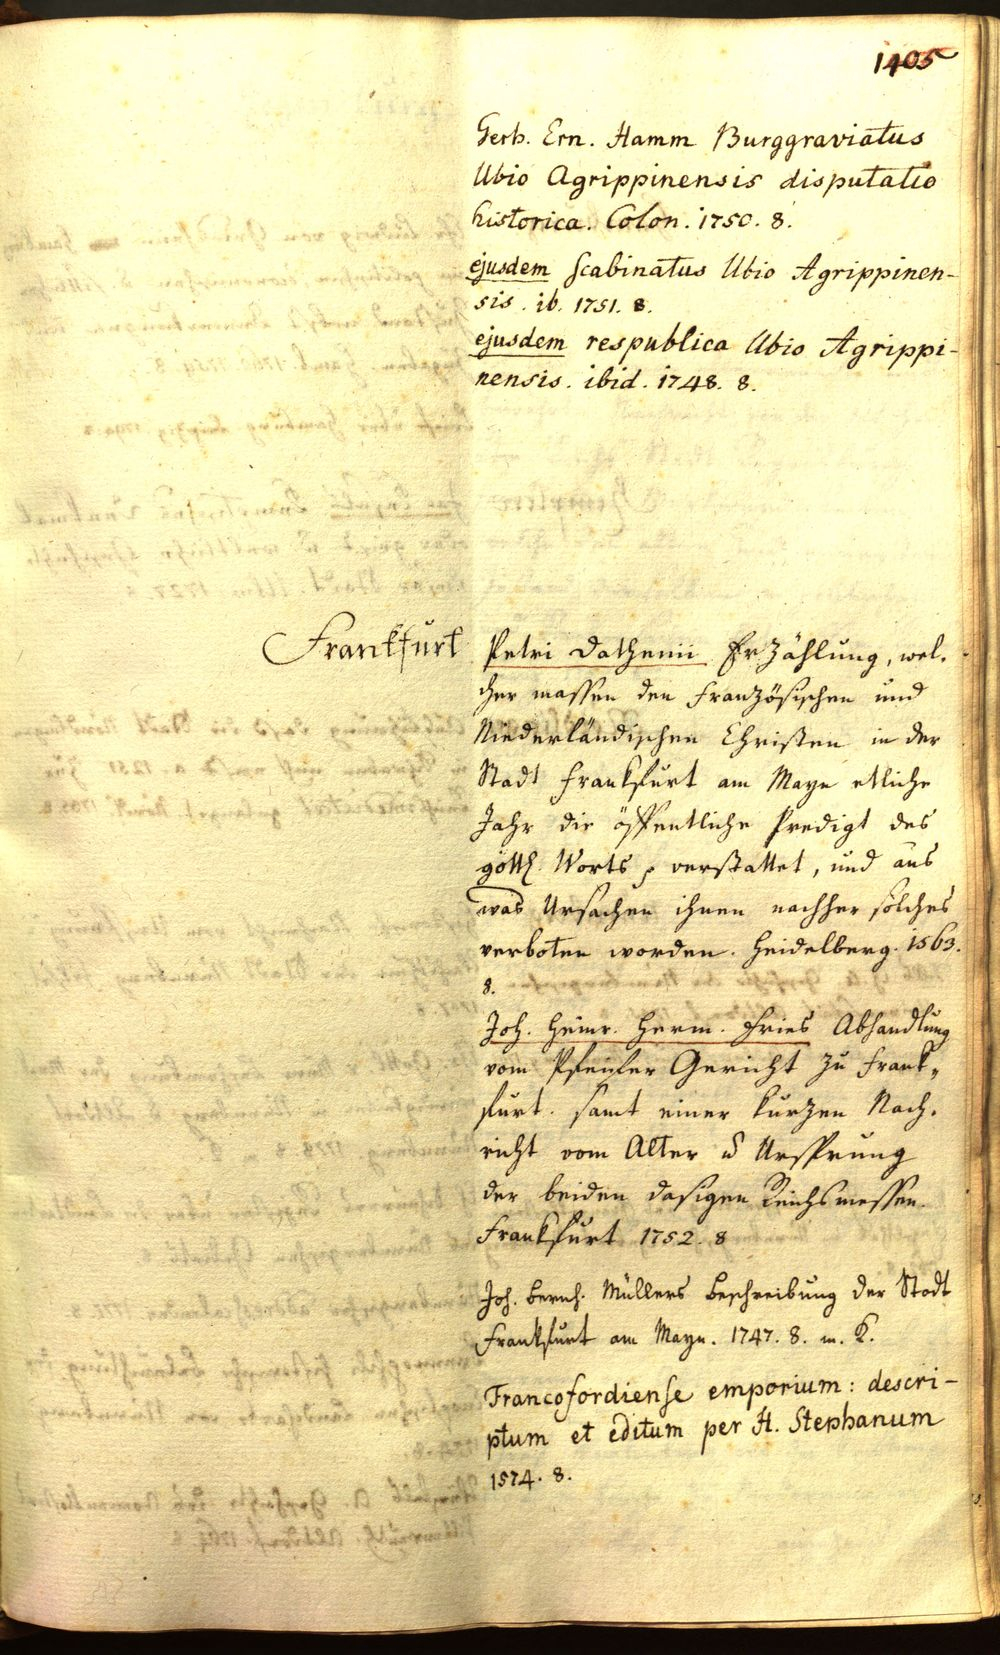 1405
Gerh. Ern. Hamm Burggraviatus
Ubio Agrippinensis disputatio
historica. Colon. 1750. 8.
ejusdem scabinatus Ubio Agrippinen-
sis. ib. 1751. 8.
ejusdem respublica Ubio Agrippi-
nensis. ibid. 1748. 8.
Frankfurt
Petri Dathenii Erzählung, wel-
cher massen den Französischen und
Niederländischen Christen in der
Stadt Frankfurt am Mayn etliche
Jahr die öffentliche Predigt des
göttl. Worts p verstattet, und aus
was Ursachen ihnen nachher solches
verboten worden. Heidelberg. 1563.
8.
Joh. Heinr. Herm. Fries Abhandlung
vom Pfeiffer Gericht zu Frank-
furt. samt einer kurzen Nach-
richt vom Alter u Ursprung
der beiden dasigen Reichsmessen.
Frankfurt 1752. 8
Joh. Bernh. Müllers Beschreibung der Stadt
Frankfurt am Mayn. 1747. 8. m. K.
Francofordiense emporium: descri-
ptum et editum per H. Stephanum
1574. 8.